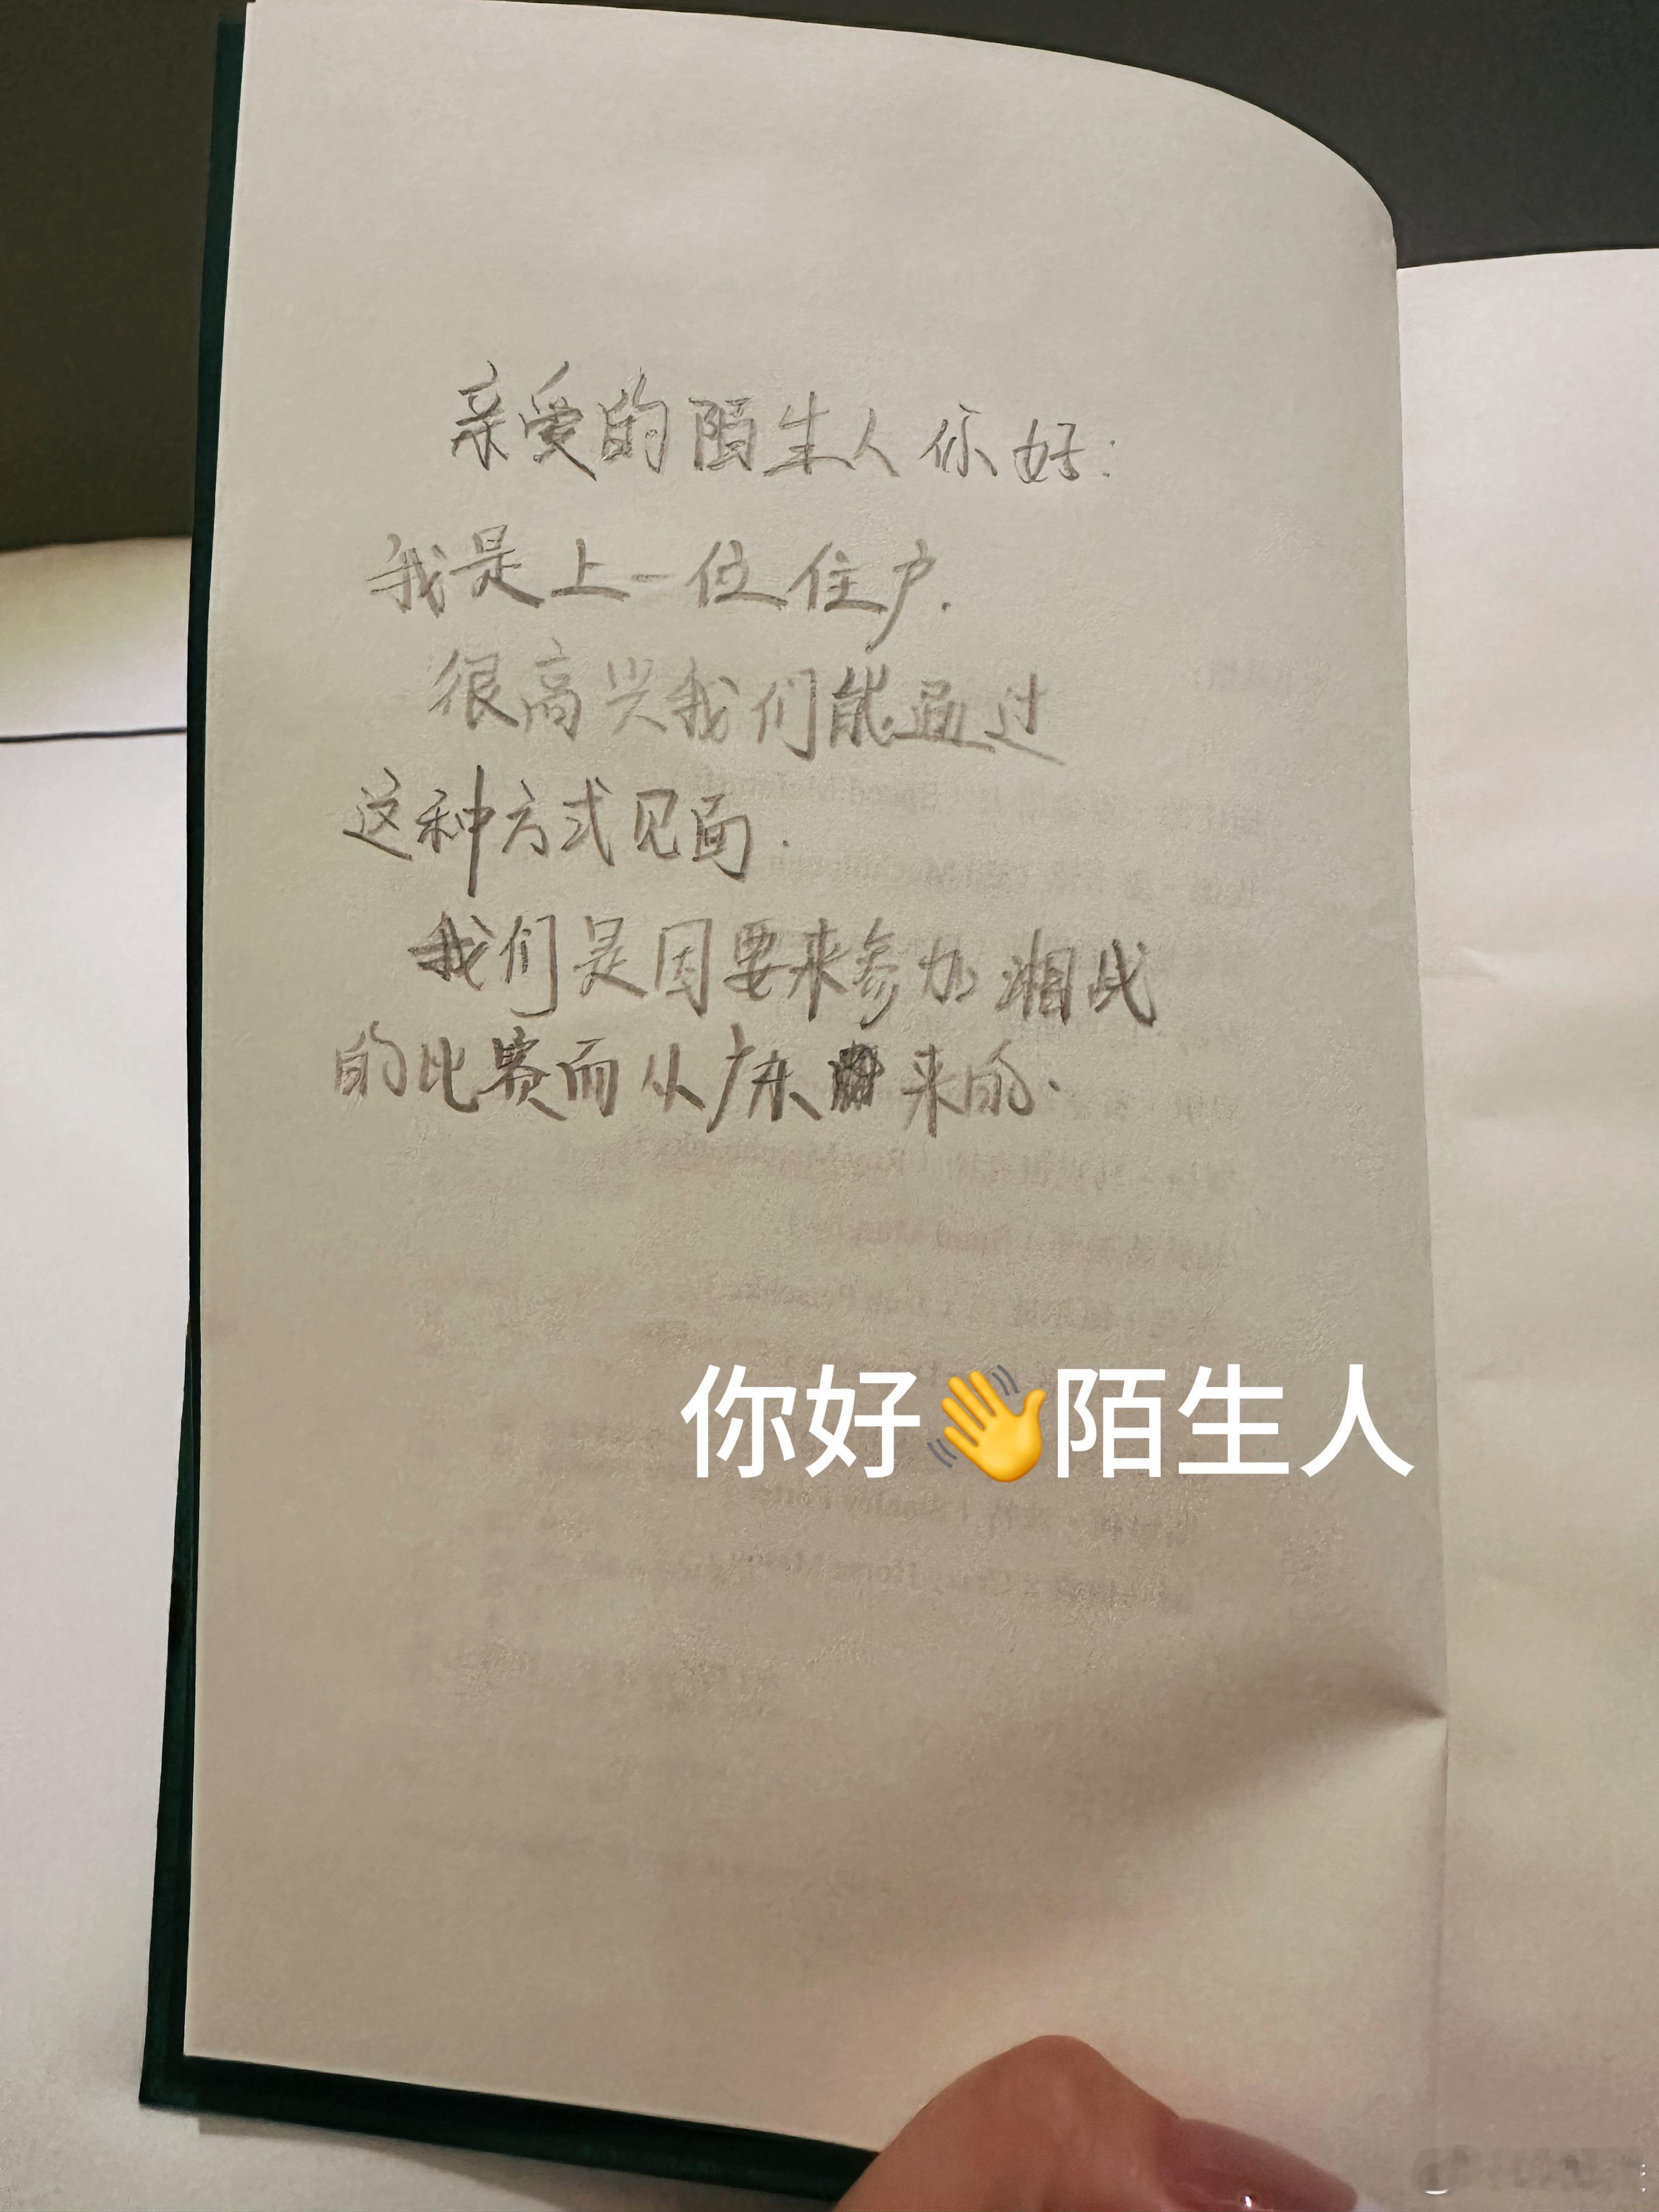 亲爱的陌生人你好：
我是上一位住户.
很高兴我们能通过
这种方式见面.
我们是因要来参加湘战
的比赛而从广东来的.
你好👋陌生人